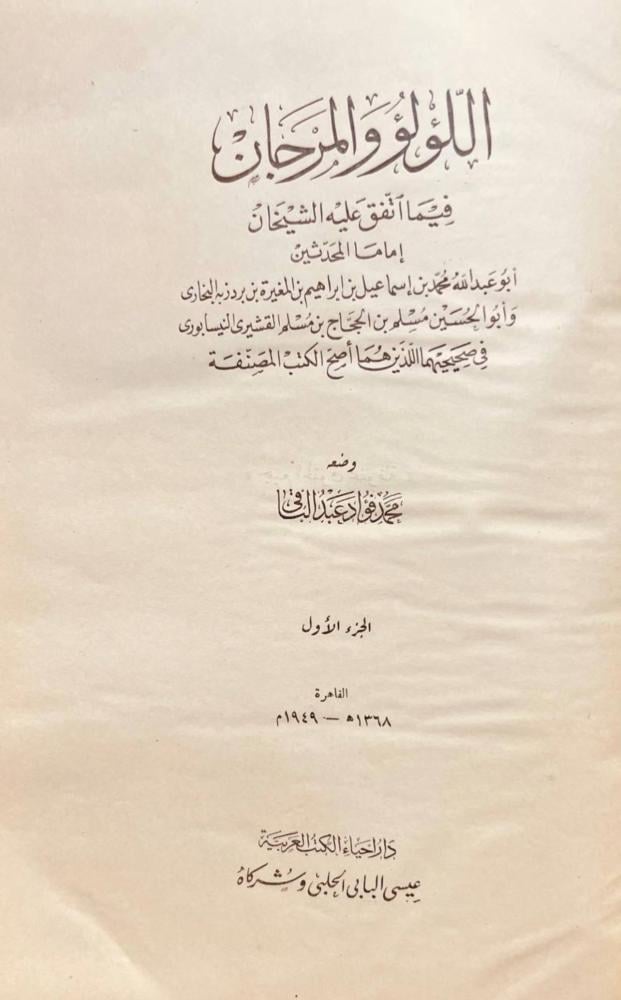 اللؤلؤ والمرجان
فيما اتفق عليه الشيخان
إماما المحدثين
أبو عبد الله محمد بن إسماعيل بن ابراهيم بن المغيرة بن بردزبه البخارى
وأبو الحسين مسلم بن الحجاج بن مسلم القشيرى النيسابورى
فى صحيحيهما اللذين هما أصح الكتب المصنفة
وضعه
محمد فؤاد عبد الباقى
الجزء الأول
القاهرة
١٣٦٨ھ — ١٩٤٩م
دار احياء الكتب العربية
عيسى البابى الحلبى وشركاه